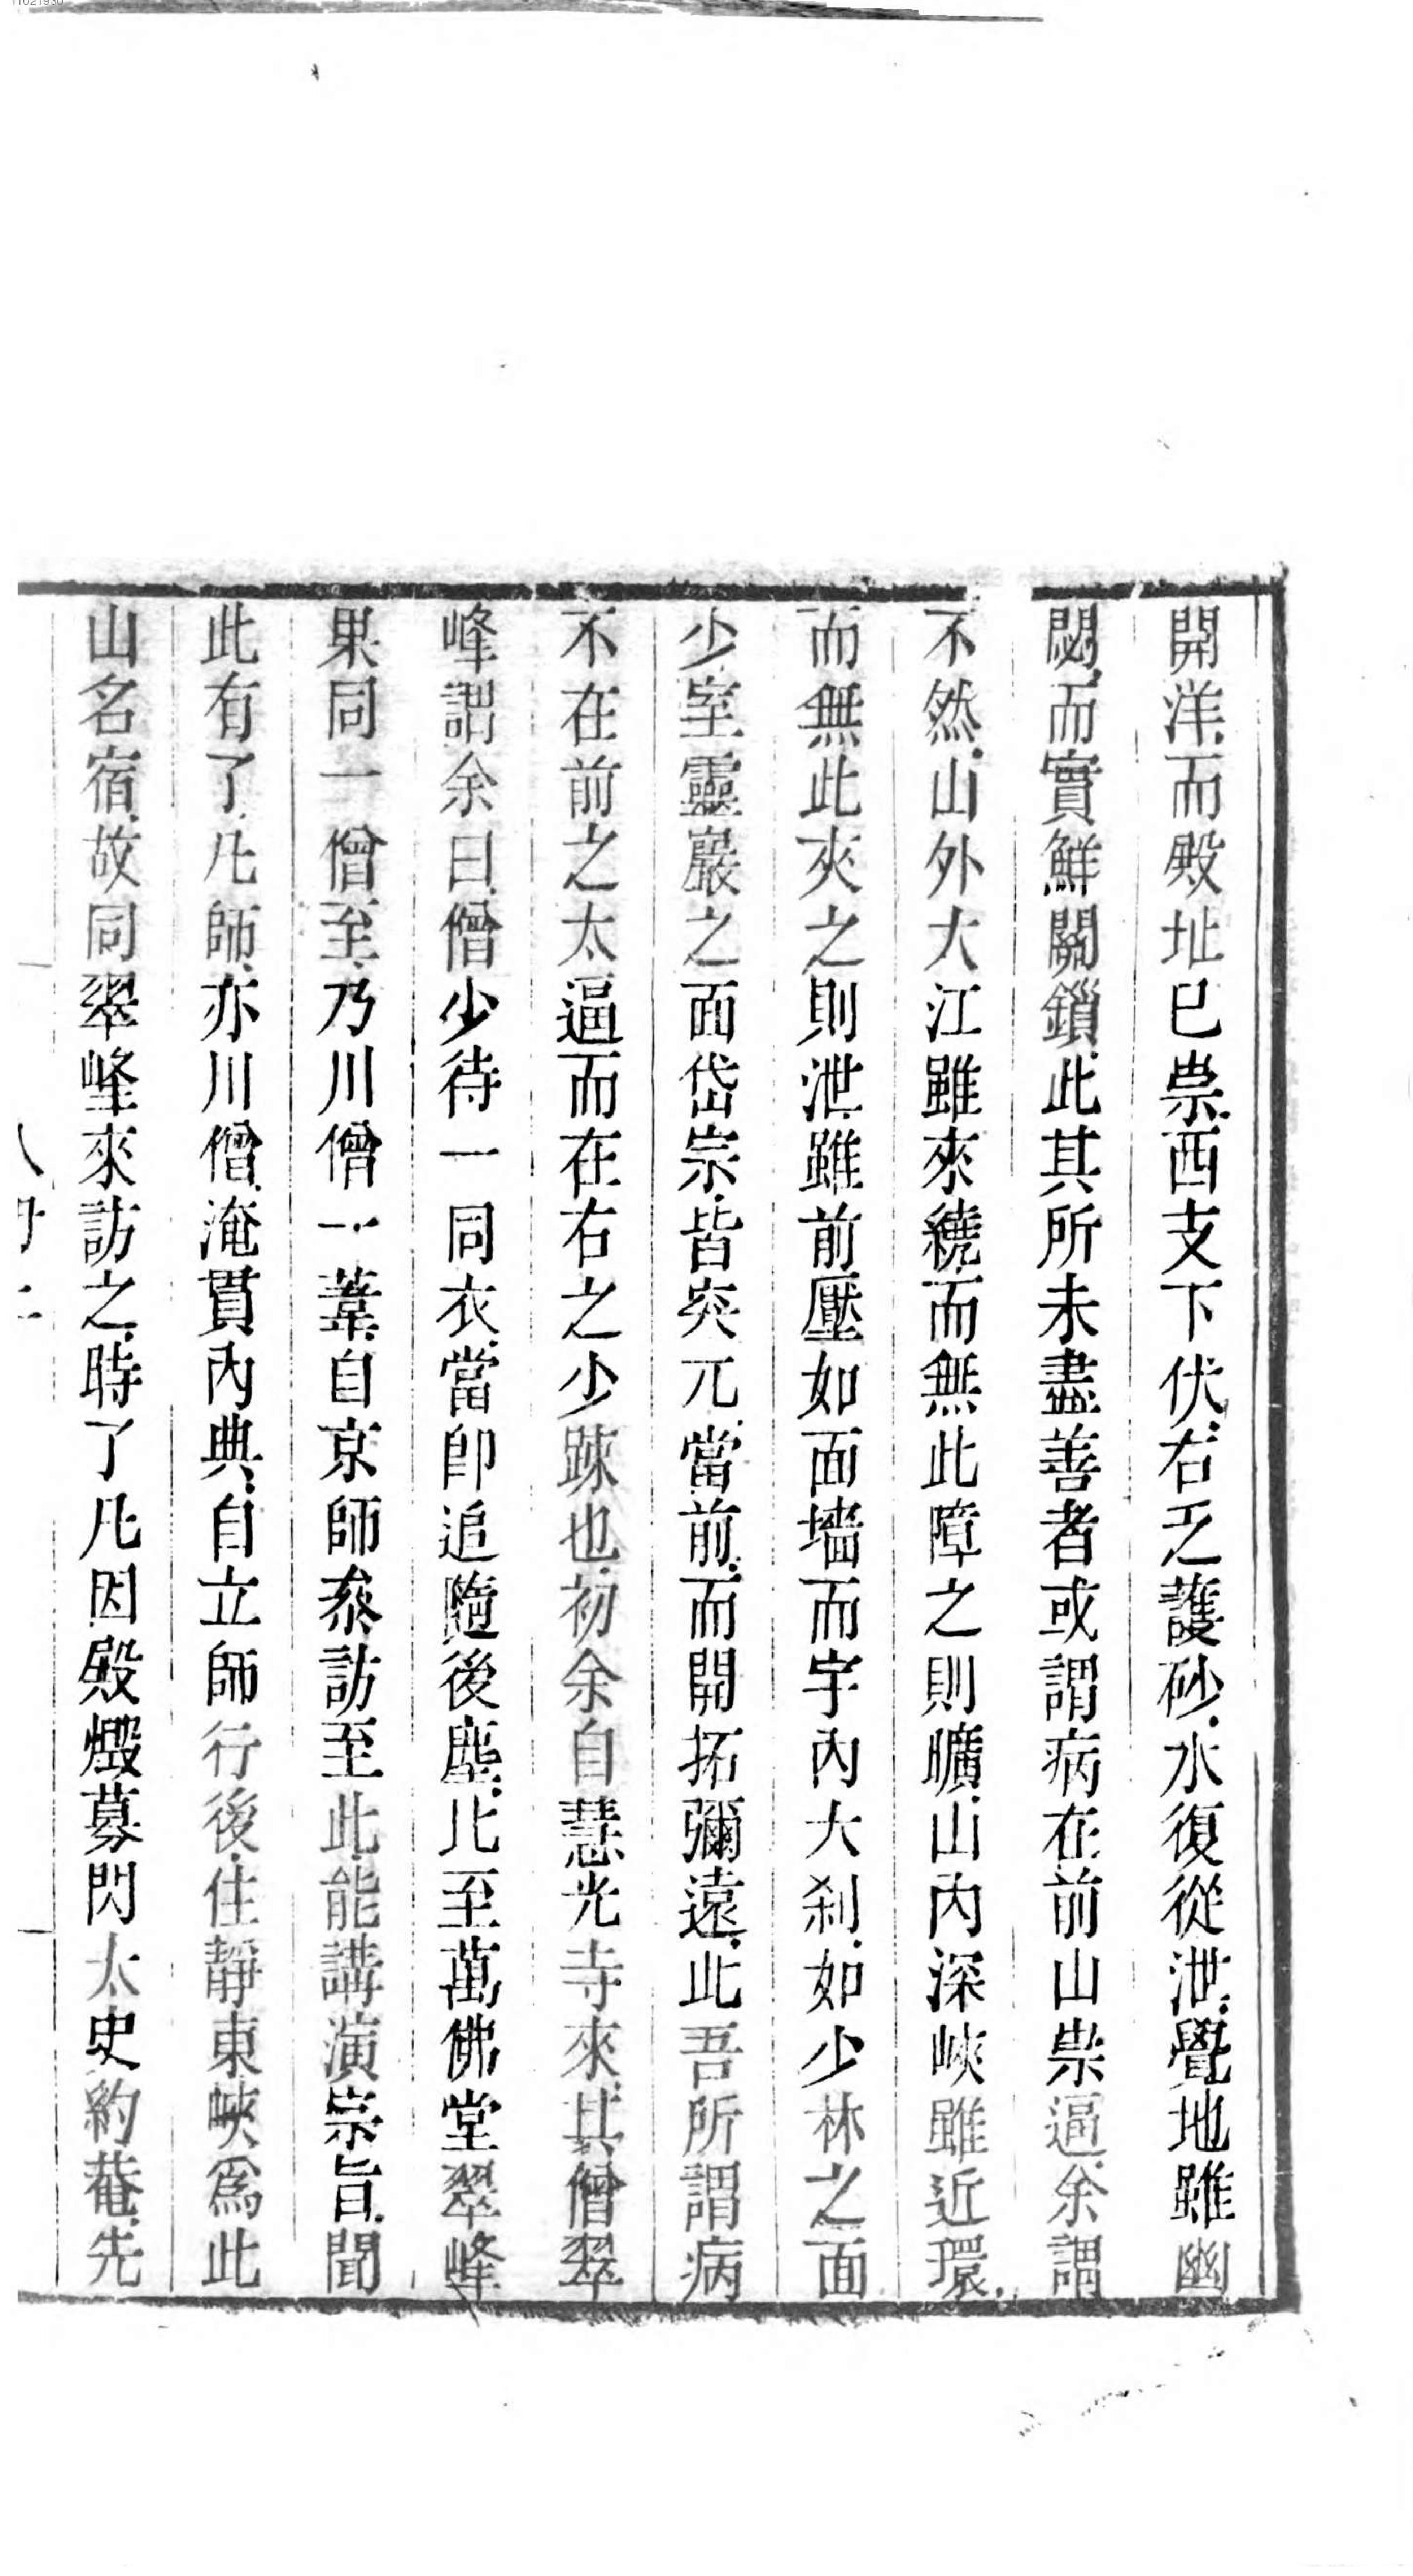 11021930
開洋而殿址已祟西支下伏右乏護砂水復從泄覺地雖幽
閟而實鮮關鎖此其所未盡善者或謂病在前山祟逼余謂
不然山外大江雖來繞而無此障之則曠山內深峽雖近環
而無此夾之則泄雖前壓如面墻而宇內大刹如少林之面
少室靈巖之面岱宗皆突兀當前而開拓彌遠此吾所謂病
不在前之太逼而在右之少踈也初余自慧光寺來其僧翠
峰謂余曰僧少待一同衣當卽追隨後塵比至萬佛堂翠峰
果同一僧至乃川僧一葦自京師叅訪至此能講演宗旨聞
此有了凡師亦川僧淹貫內典自立師行後住靜東峽爲此
山名宿故同翠峰來訪之時了凡因殿燬募閃太史約菴先